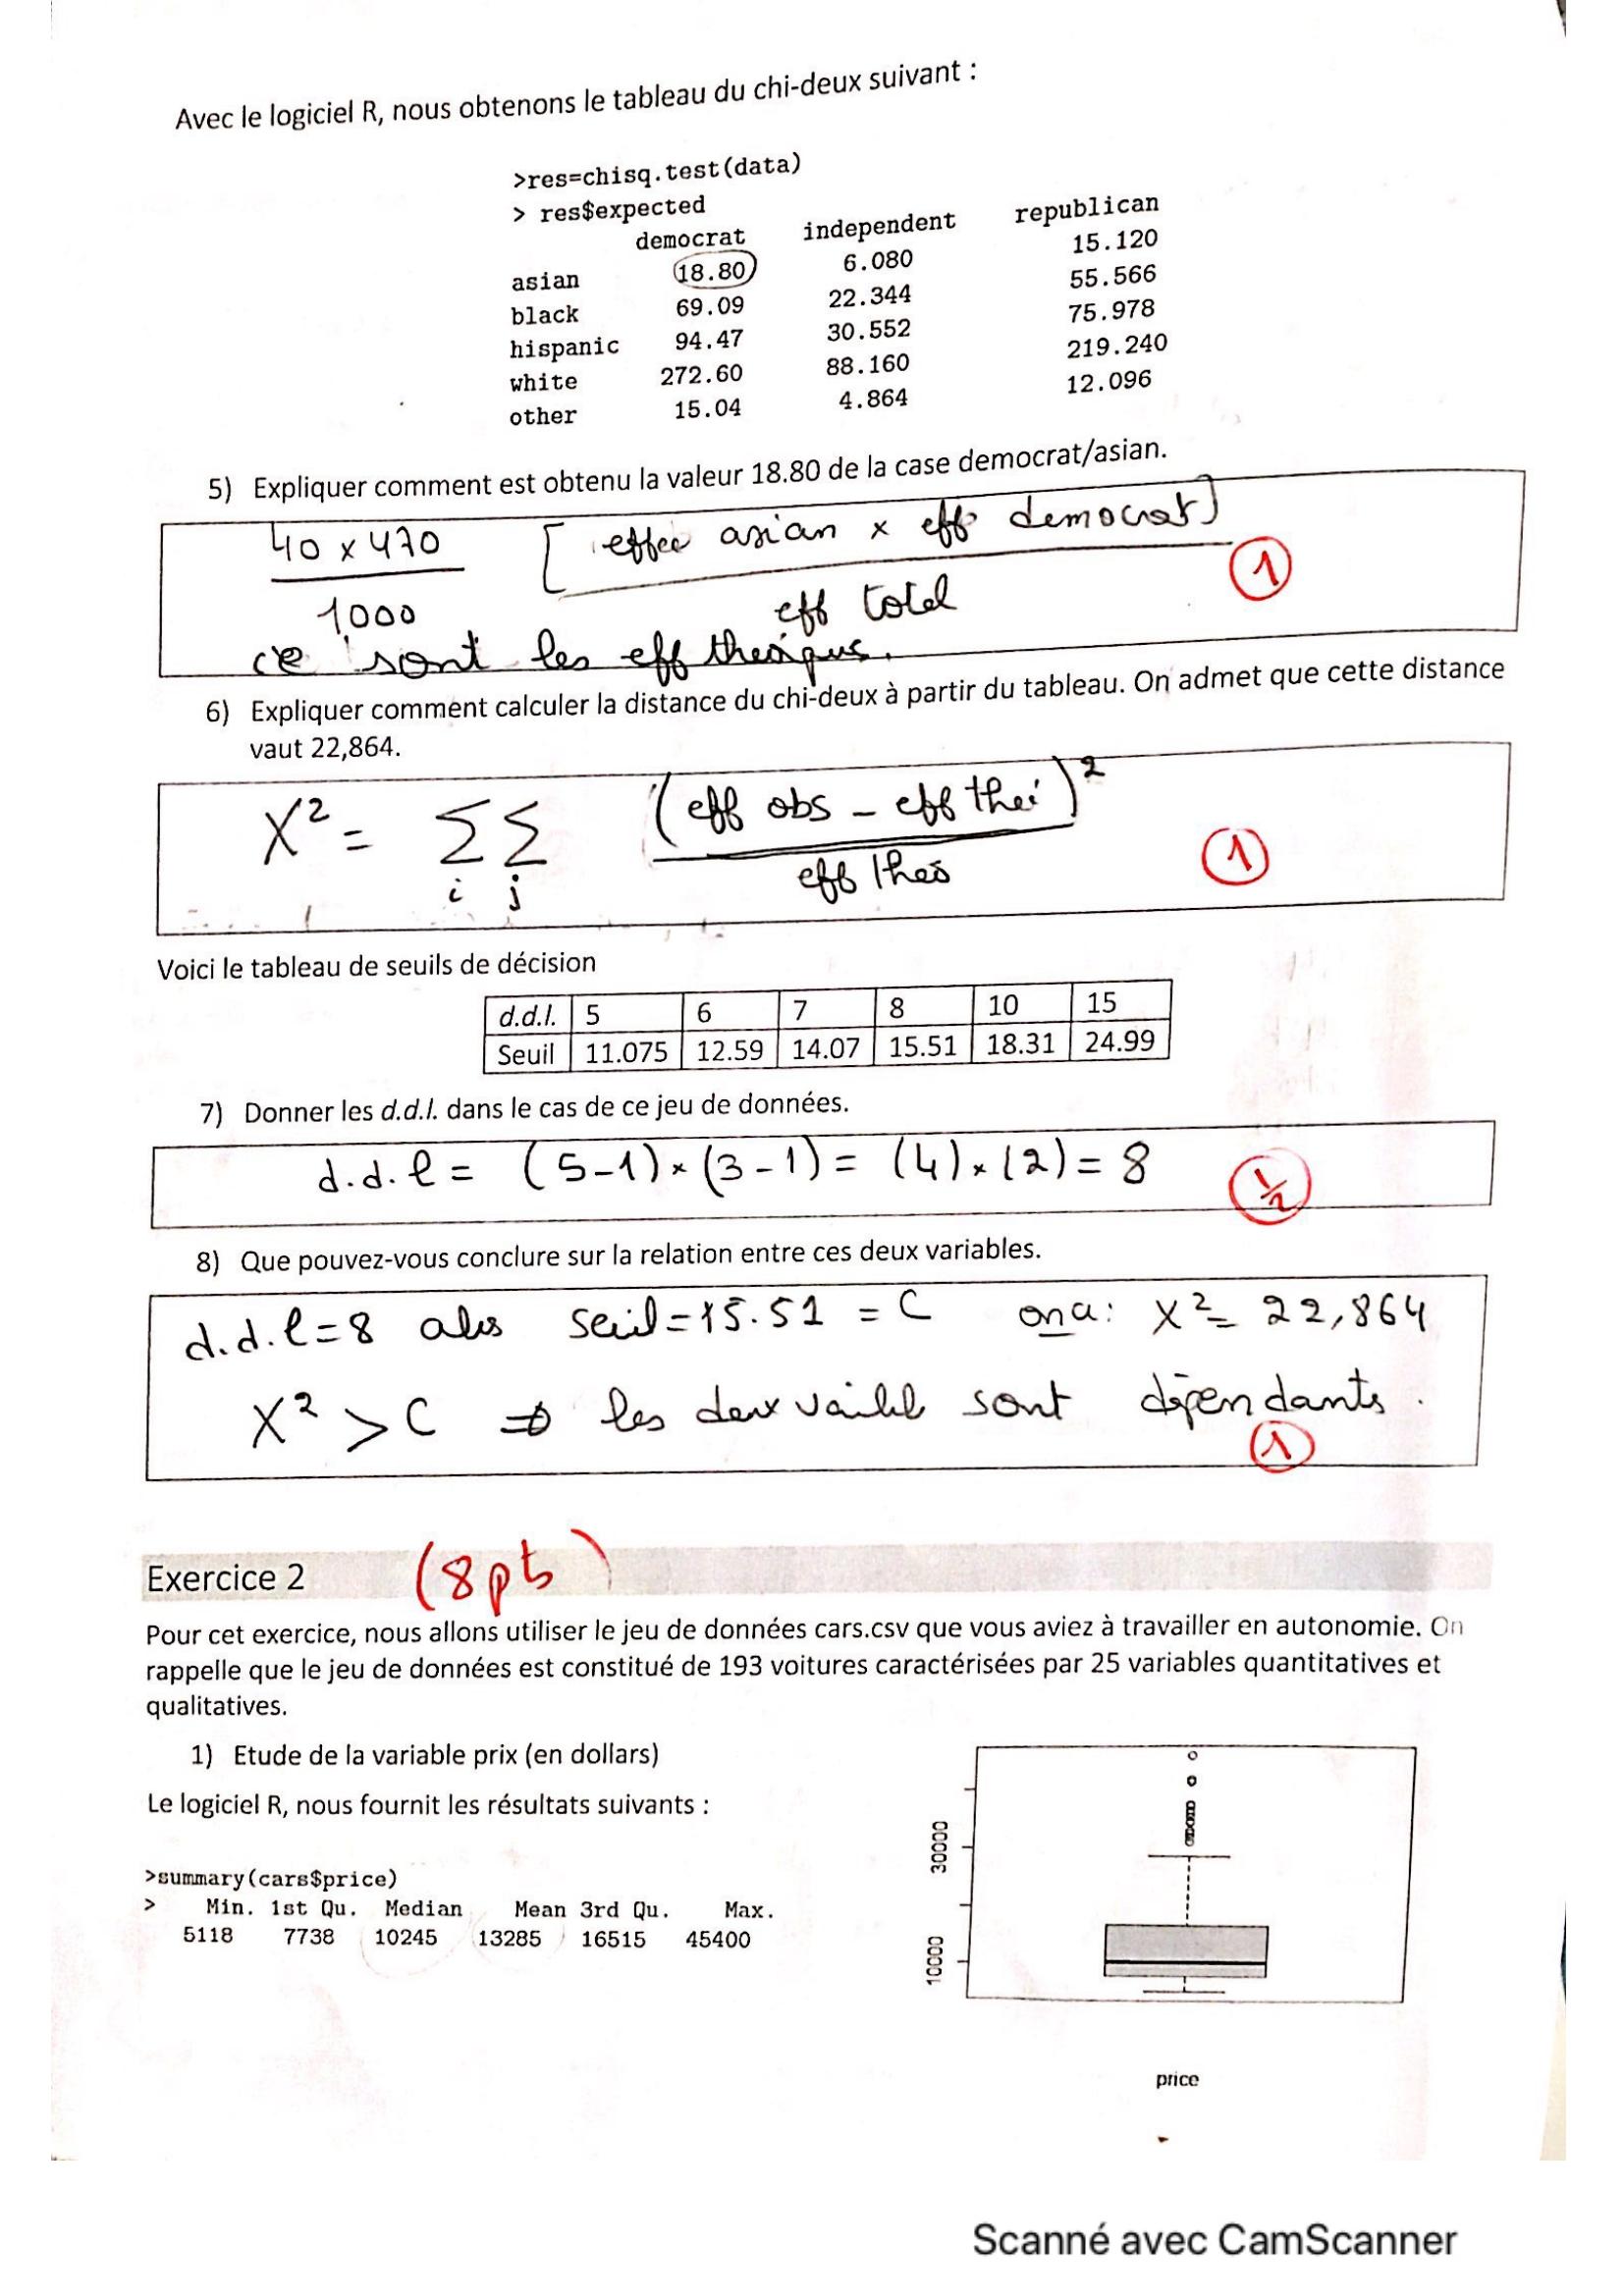 Avec le logiciel R, nous obtenons le tableau du chi-deux suivant :
>res=chisq.test(data)
> res$expected
democrat independent republican
asian 18.80 6.080 15.120
black 69.09 22.344 55.566
hispanic 94.47 30.552 75.978
white 272.60 88.160 219.240
other 15.04 4.864 12.096
5) Expliquer comment est obtenu la valeur 18.80 de la case democrat/asian.
40 x 470 [ effec asian x eff democrat]
1000 eff total
1
ce sont les eff
6) Expliquer comment calculer la distance du chi-deux à partir du tableau. On admet que cette distance
vaut 22,864.
X² = Σ Σ (eff obs - eff theo)²
i j eff theo
1
Voici le tableau de seuils de décision
d.d.l. 5 6 7 8 10 15
Seuil 11.075 12.59 14.07 15.51 18.31 24.99
7) Donner les d.d.l. dans le cas de ce jeu de données.
d.d.l = (5-1) x (3-1) = (4) x (2) = 8
1/2
8) Que pouvez-vous conclure sur la relation entre ces deux variables.
d.d.l=8 alors seuil=15.51 = C on a: X² = 22,864
X² > C ⇒ les deux sont dépendants.
1
Exercice 2 (8pts)
Pour cet exercice, nous allons utiliser le jeu de données cars.csv que vous aviez à travailler en autonomie. On
rappelle que le jeu de données est constitué de 193 voitures caractérisées par 25 variables quantitatives et
qualitatives.
1) Etude de la variable prix (en dollars)
Le logiciel R, nous fournit les résultats suivants :
>summary(cars$price)
> Min. 1st Qu. Median Mean 3rd Qu. Max.
5118 7738 10245 13285 16515 45400
30000
10000
price
Scanné avec CamScanner